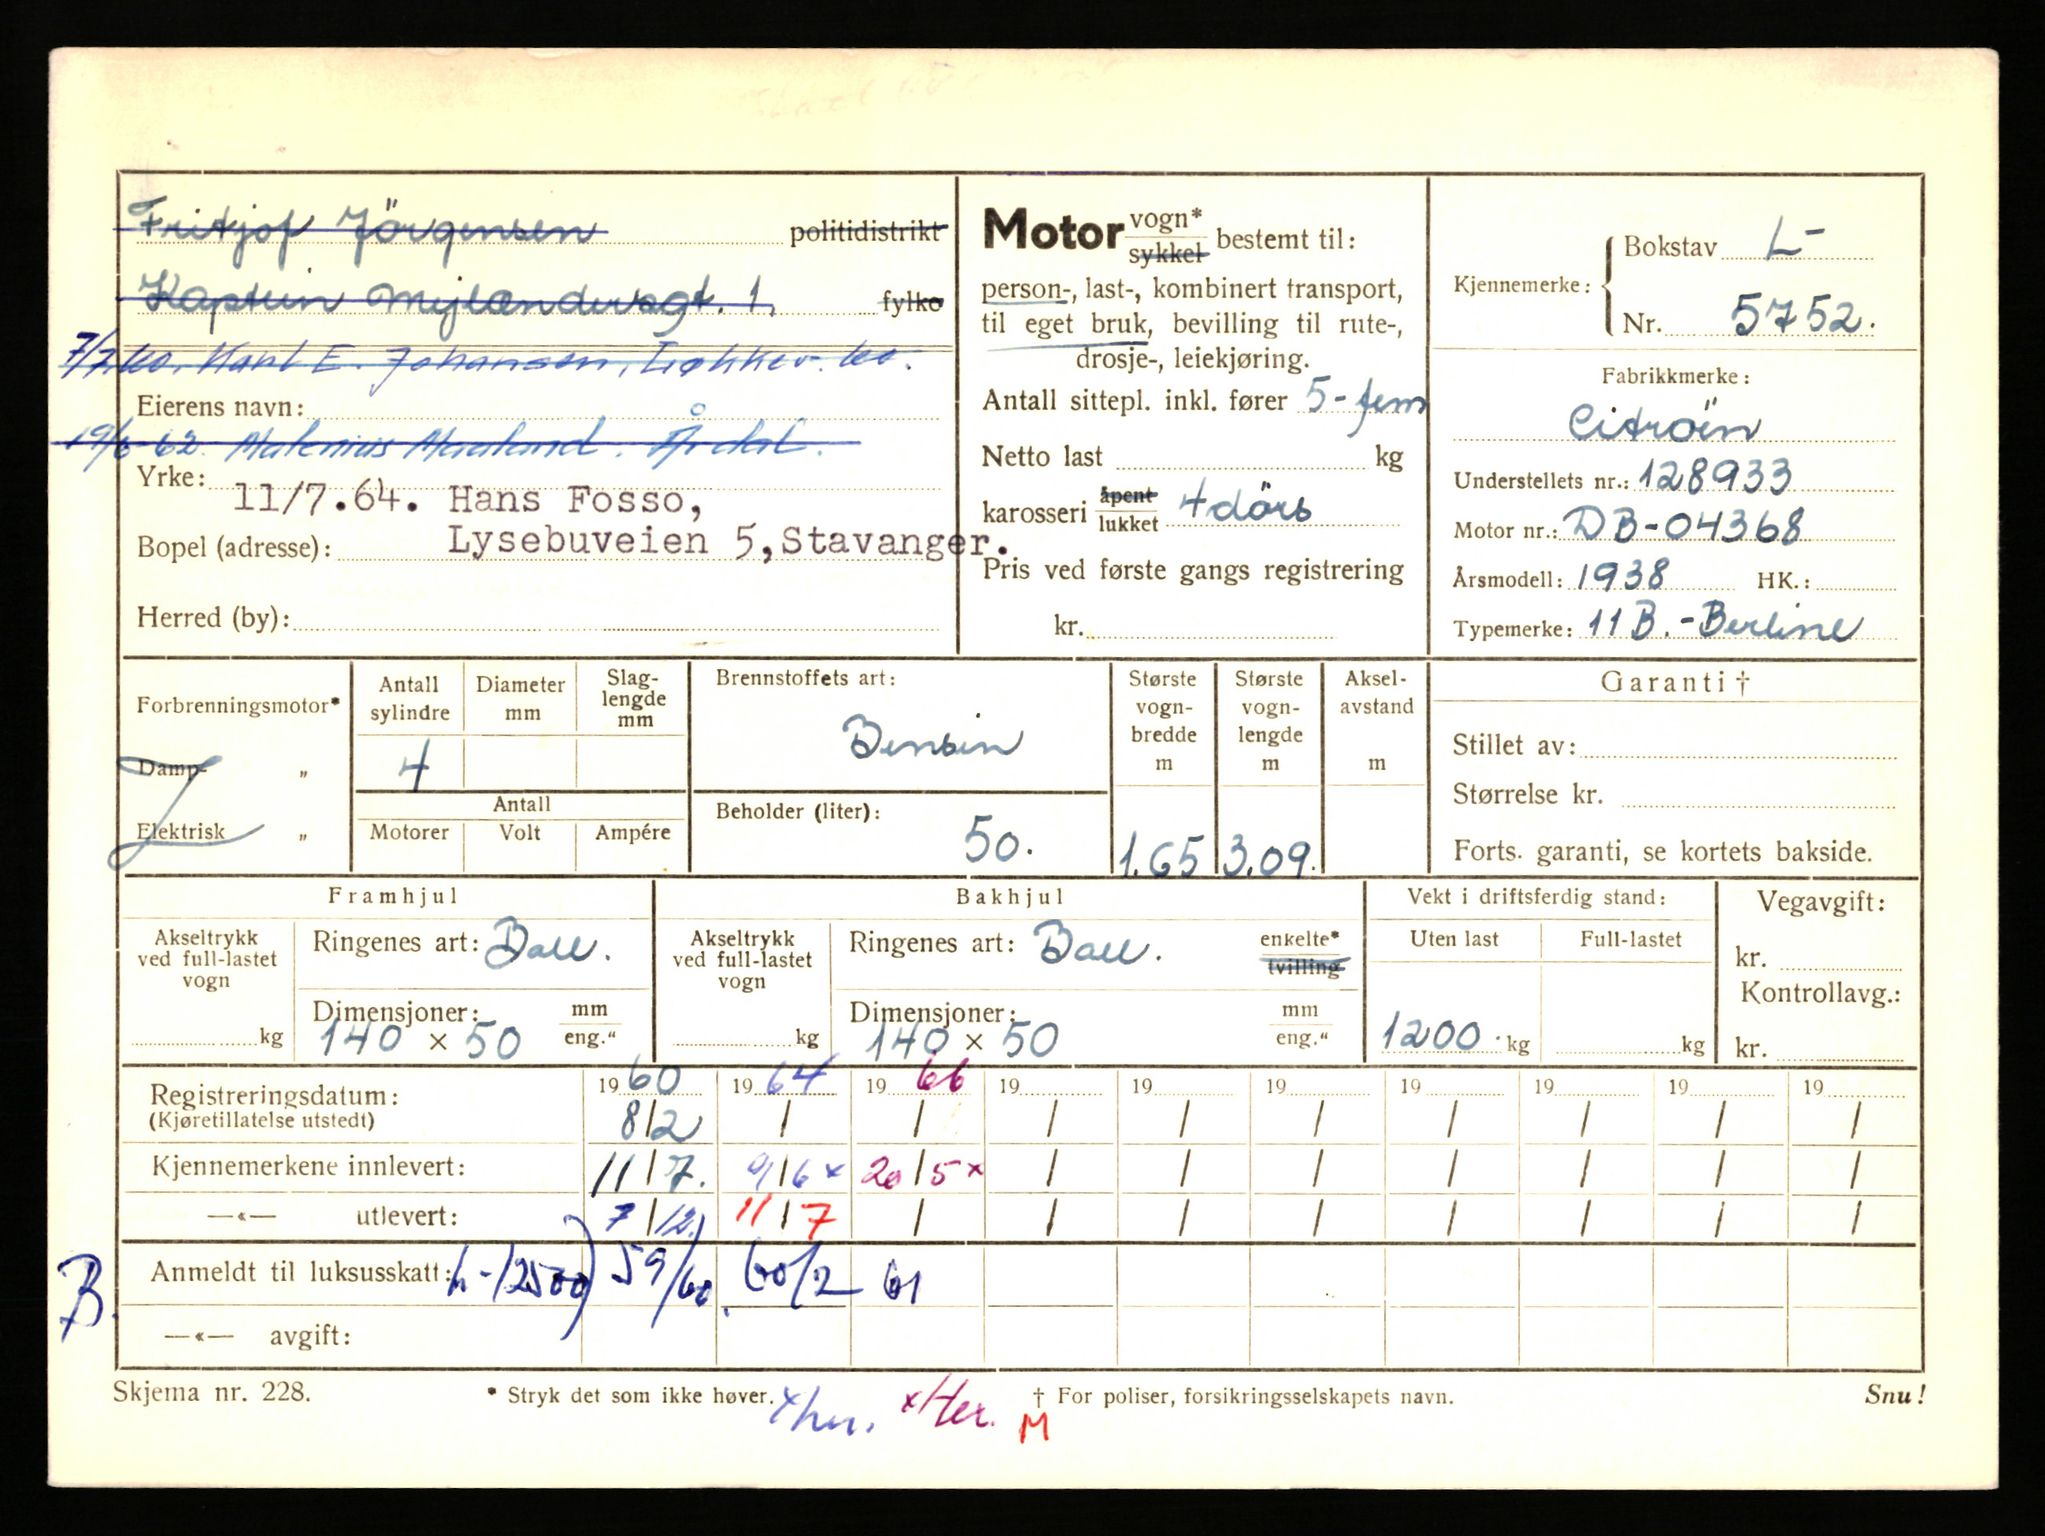 Fritjof Jörgensen politidistrikt
Kaptein Mejlændersgt. 1. fylke
7/12 60. Karl E. Johansen, Løkkev. 60.
Eierens navn:
19/6 62. Maland. Årdal.
Yrke:
11/7.64. Hans Fosso,
Bopel (adresse): Lysebuveien 5, Stavanger.
Herred (by):
Motor vogn* sykkel bestemt til:
person-, last-, kombinert transport,
til eget bruk, bevilling til rute-,
drosje-, leiekjøring.
Antall sittepl. inkl. fører 5-fem
Netto last kg
karosseri åpent lukket 4 dörs
Pris ved første gangs registrering
kr.
Kjennemerke: Bokstav L-
Nr. 5752.
Fabrikkmerke:
Citroën
Understellets nr.: 128933
Motor nr.: DB-04368
Årsmodell: 1938 HK.:
Typemerke: 11 B.-Berline
Forbrenningsmotor*
Damp- "
Elektrisk "
Antall sylindre Diameter mm Slag-lengde mm
4
Antall
Motorer Volt Ampére
Brennstoffets art:
Bensin
Beholder (liter):
50.
Største vogn-bredde m
1.65
Største vogn-lengde m
3.09.
Aksel-avstand m
Garanti †
Stillet av:
Størrelse kr.
Forts. garanti, se kortets bakside.
Framhjul
Akseltrykk ved full-lastet vogn
kg
Ringenes art: Ball.
Dimensjoner: mm
140 × 50 eng."
Bakhjul
Akseltrykk ved full-lastet vogn
kg
Ringenes art: Ball. enkelte* tvilling
Dimensjoner: mm
140 × 50 eng."
Vekt i driftsferdig stand:
Uten last Full-lastet
1200 kg kg
Vegavgift:
kr.
Kontrollavg.:
kr.
Registreringsdatum: 19 60 19 64 19 66 19 19 19 19 19 19 19
(Kjøretillatelse utstedt) 8/2 / / / / / / / / /
Kjennemerkene innlevert: 11/7. 9/6 x 20/5 x / / / / / / /
—«— utlevert: 7/12. 11/7 / / / / / / / /
B. Anmeldt til luksusskatt: L-12500) 59/60. 60/2 61
—«— avgift:
Skjema nr. 228. * Stryk det som ikke høver. † For poliser, forsikringsselskapets navn. Snu!
x her. x Her. M